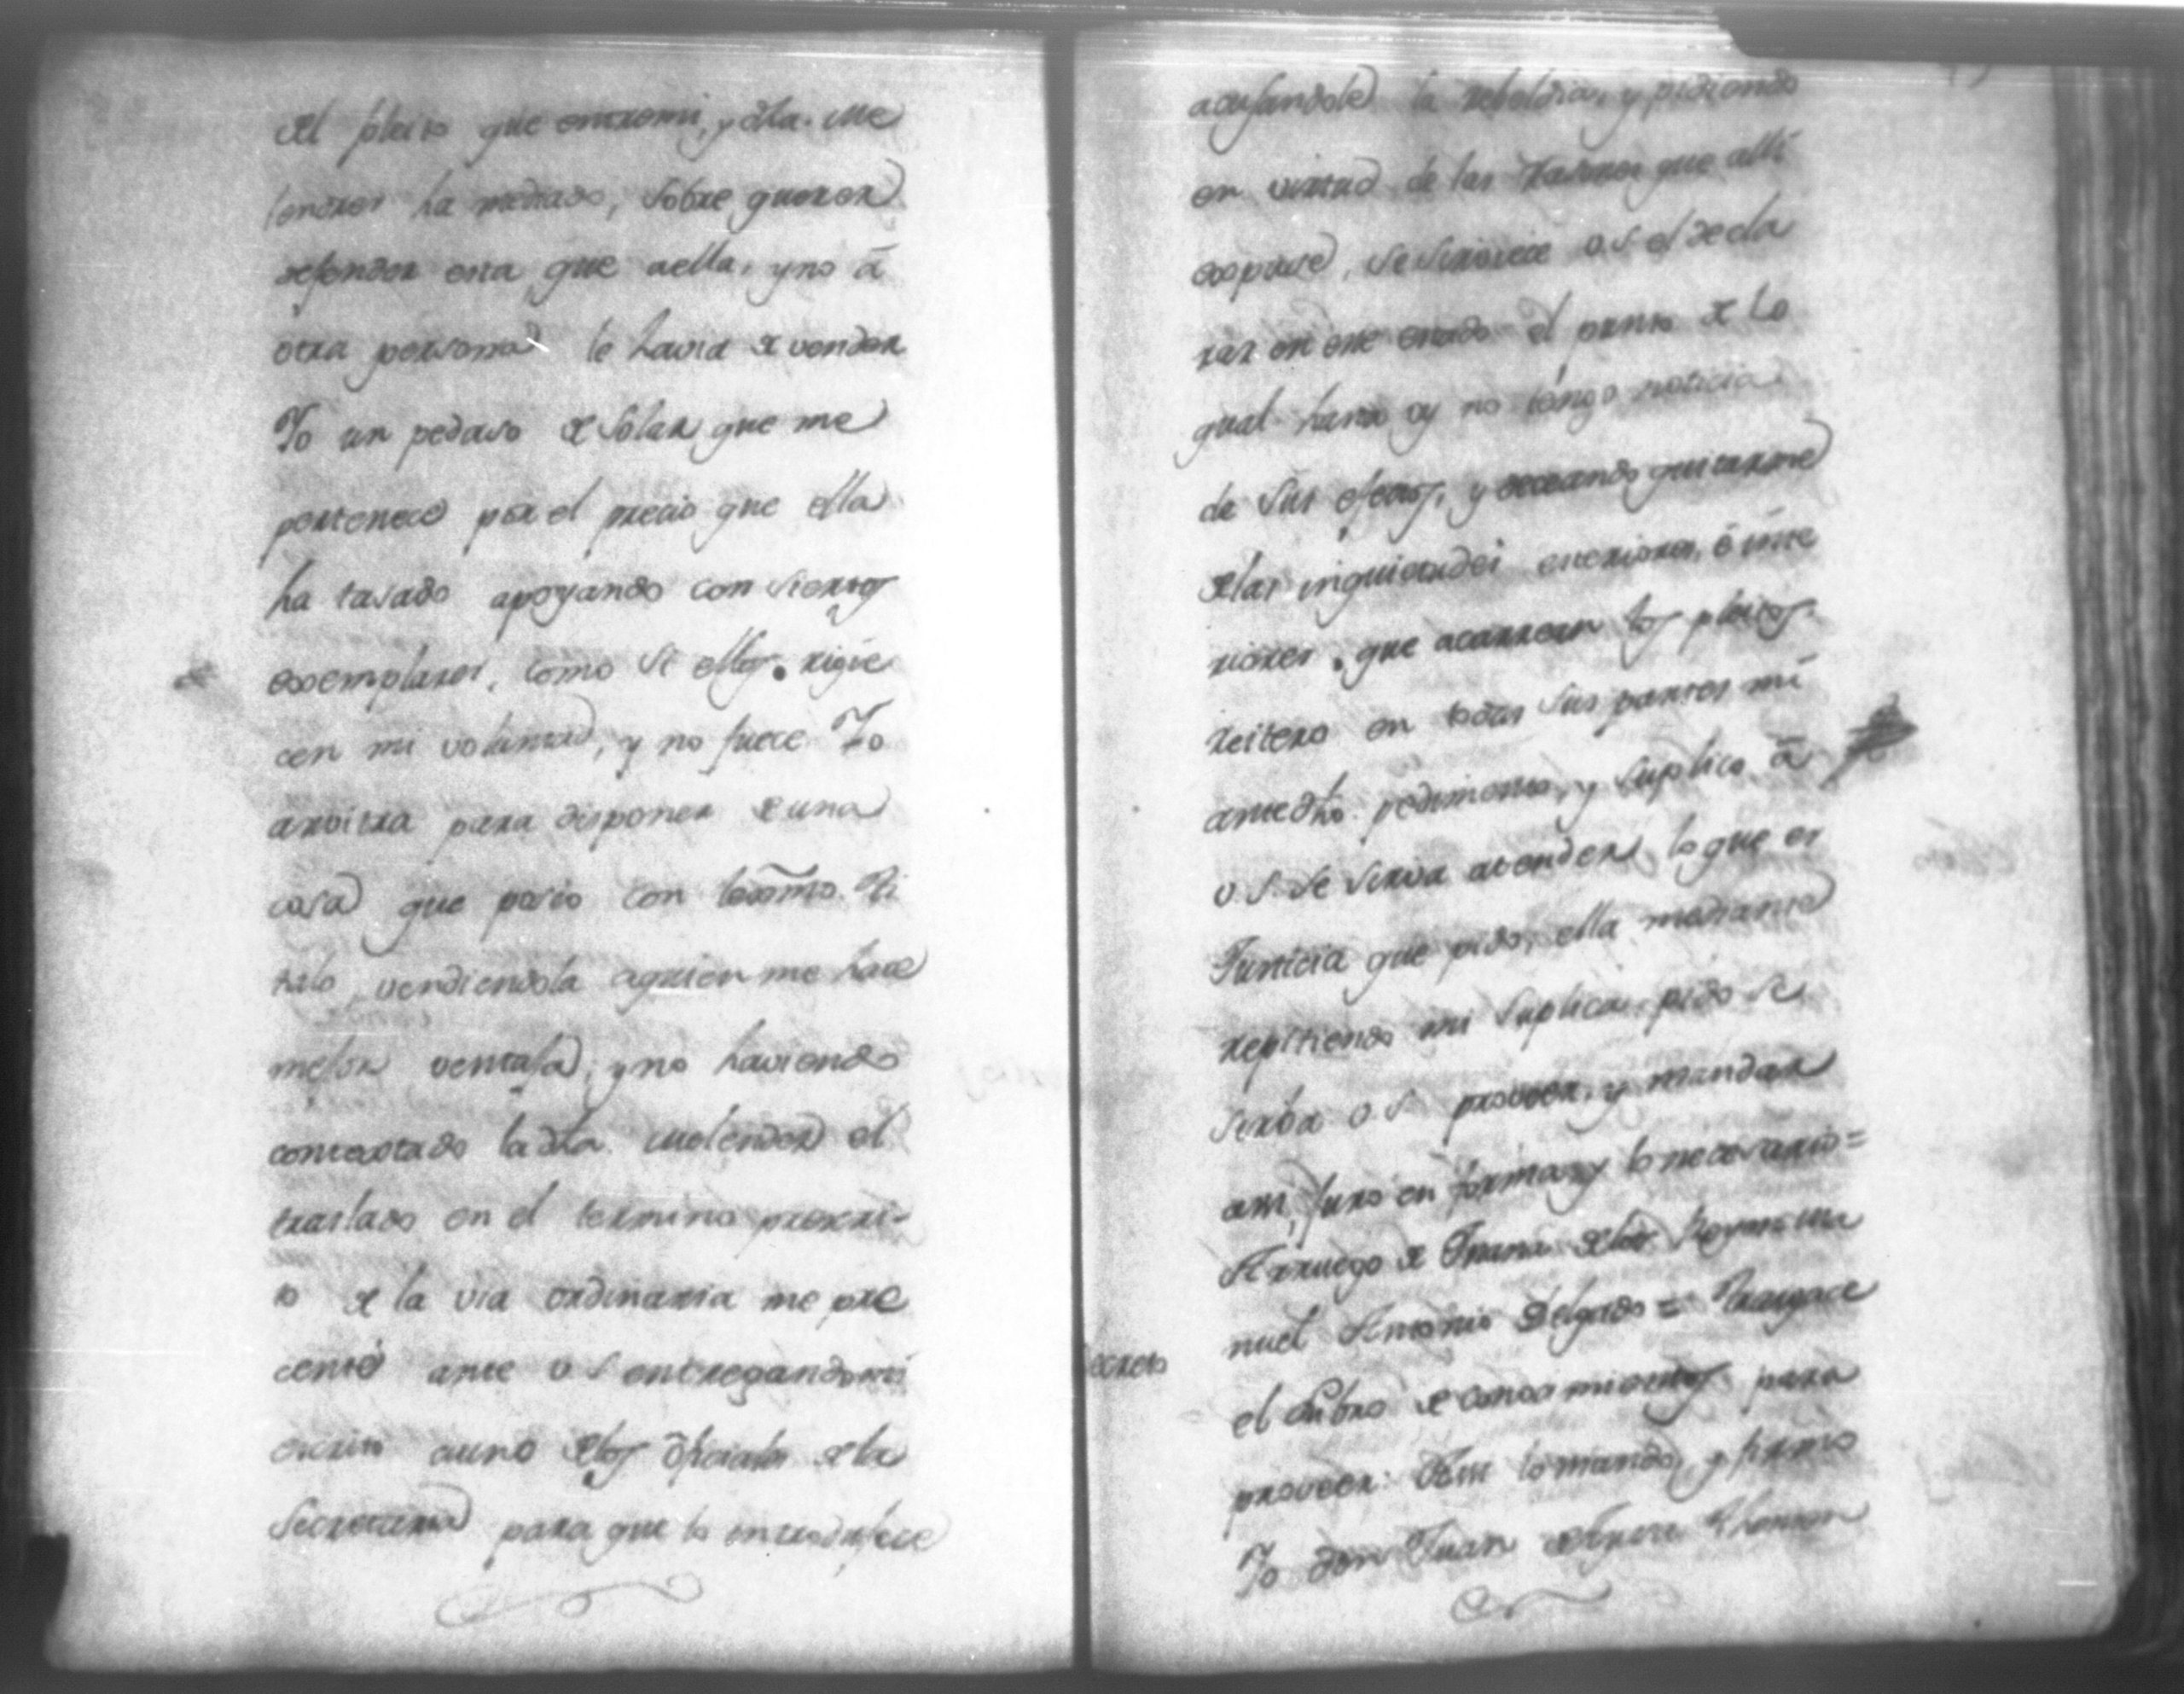 del pleito que entremi, y dha. Me
lendres ha mediado, sobre querer
defender esta que aella, y no á
otra persona le havia de vender
Yo un pedaso de Solar que me
pertenece por el precio que ella
ha tasado apoyando con siertos
exemplares, como si ellos rigie
cen mi voluntad, y no fuece Yo
arvitra para disponer de una
cosa que poseo con lexmo. Ti
tulo, vendiendola aquien me hace
mejor ventaja, y no haviendo
contextado la dha. Melendes el
traslado en el termino prexxi-
to de la via ordinaria me pre
centé ante V.S. entregando mi
escrito auno delos oficiales de la
Secretaria para que lo introdujece
acusandole la rebeldia, y pidiendo
en virtud de las rasones que alli
expuse, se sirviece V.S. el decla
rar en este estado el punto de lo
qual hasta oy no tengo noticia
de sus efectos, y deceando quitarme
delas inquietudes exteriores, ó inte
riores, que acarrean los pleitos
reitero en todas sus partes mi
antedho. pedimento, y suplico á
V.S. se sirva atender lo que es
Justicia que pido, ella mediante
repitiendo mi suplica, pido se
sirba V.S. proveer, y mandar
asi, juro en forma, y lo necesario =
A rruego de Juana delos Reyes Ma
nuel Antonio Delgado = Traigace
ecreto
el Libro de conocimientos para
proveer: Assi lo mando, y firmo
Yo don Juan